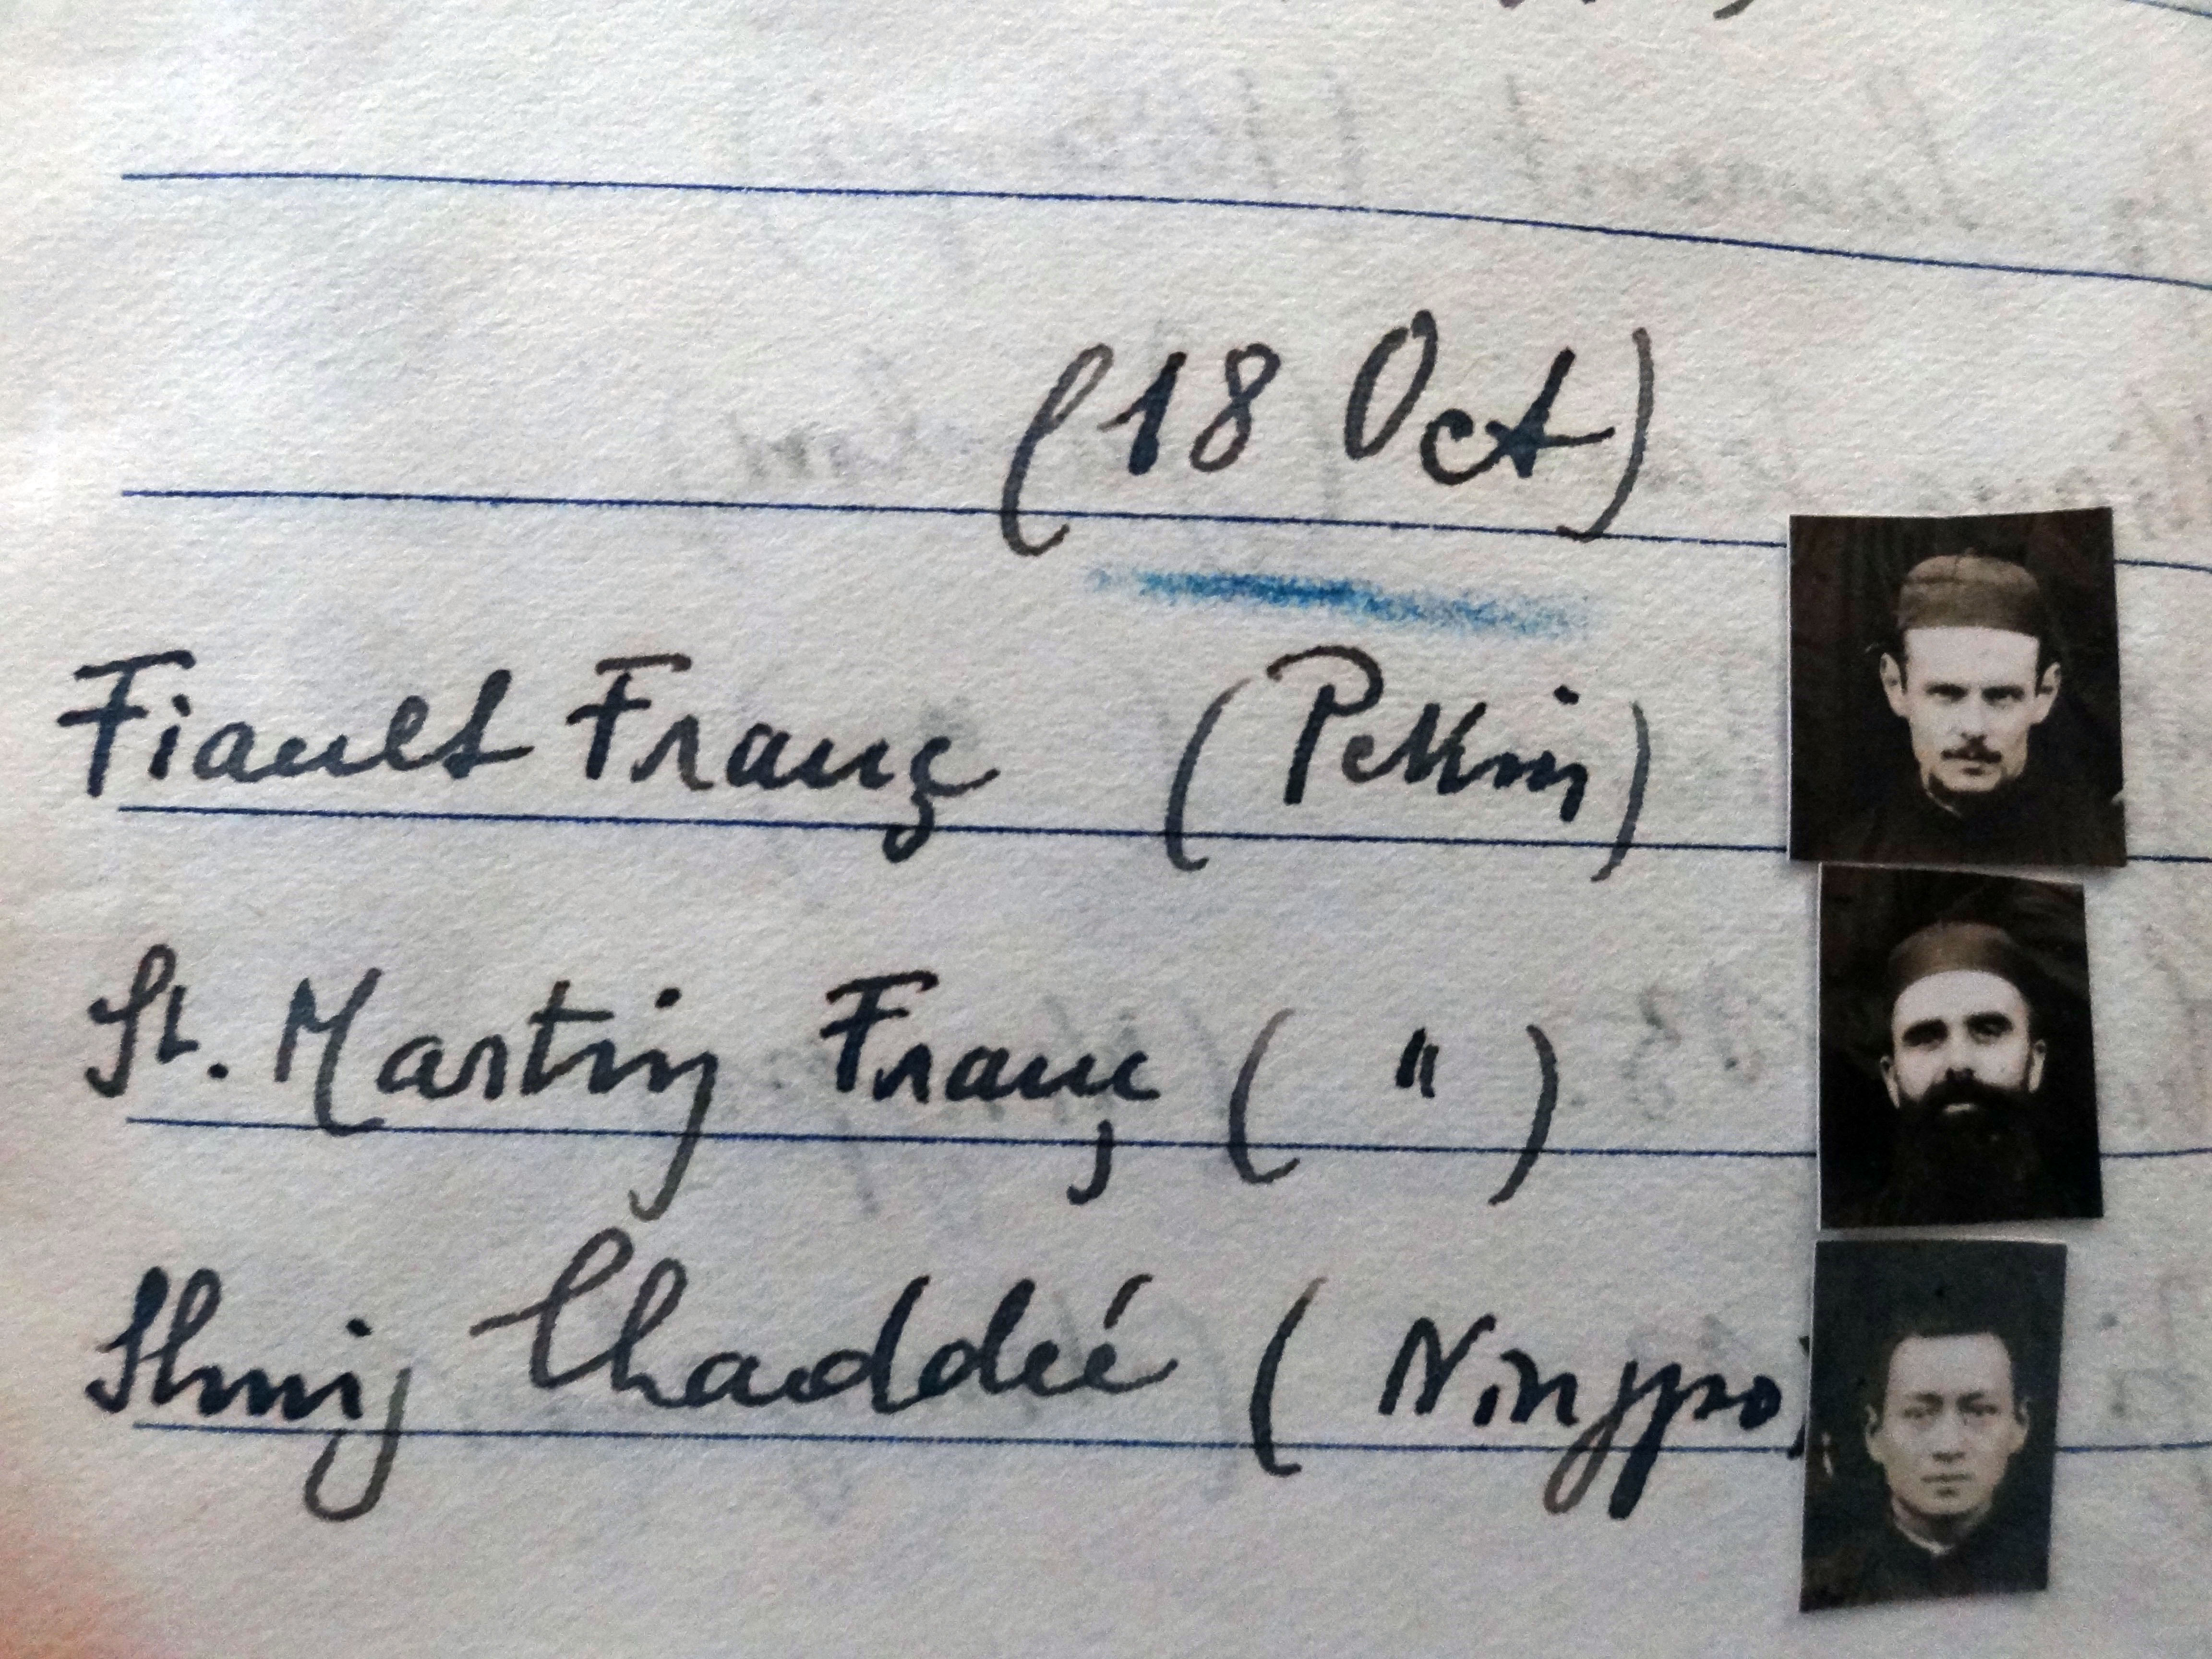 (18 Oct)
Fiault Franç (Pékin)
St. Martin Franç ( " )
Thaddée (Ningpo)